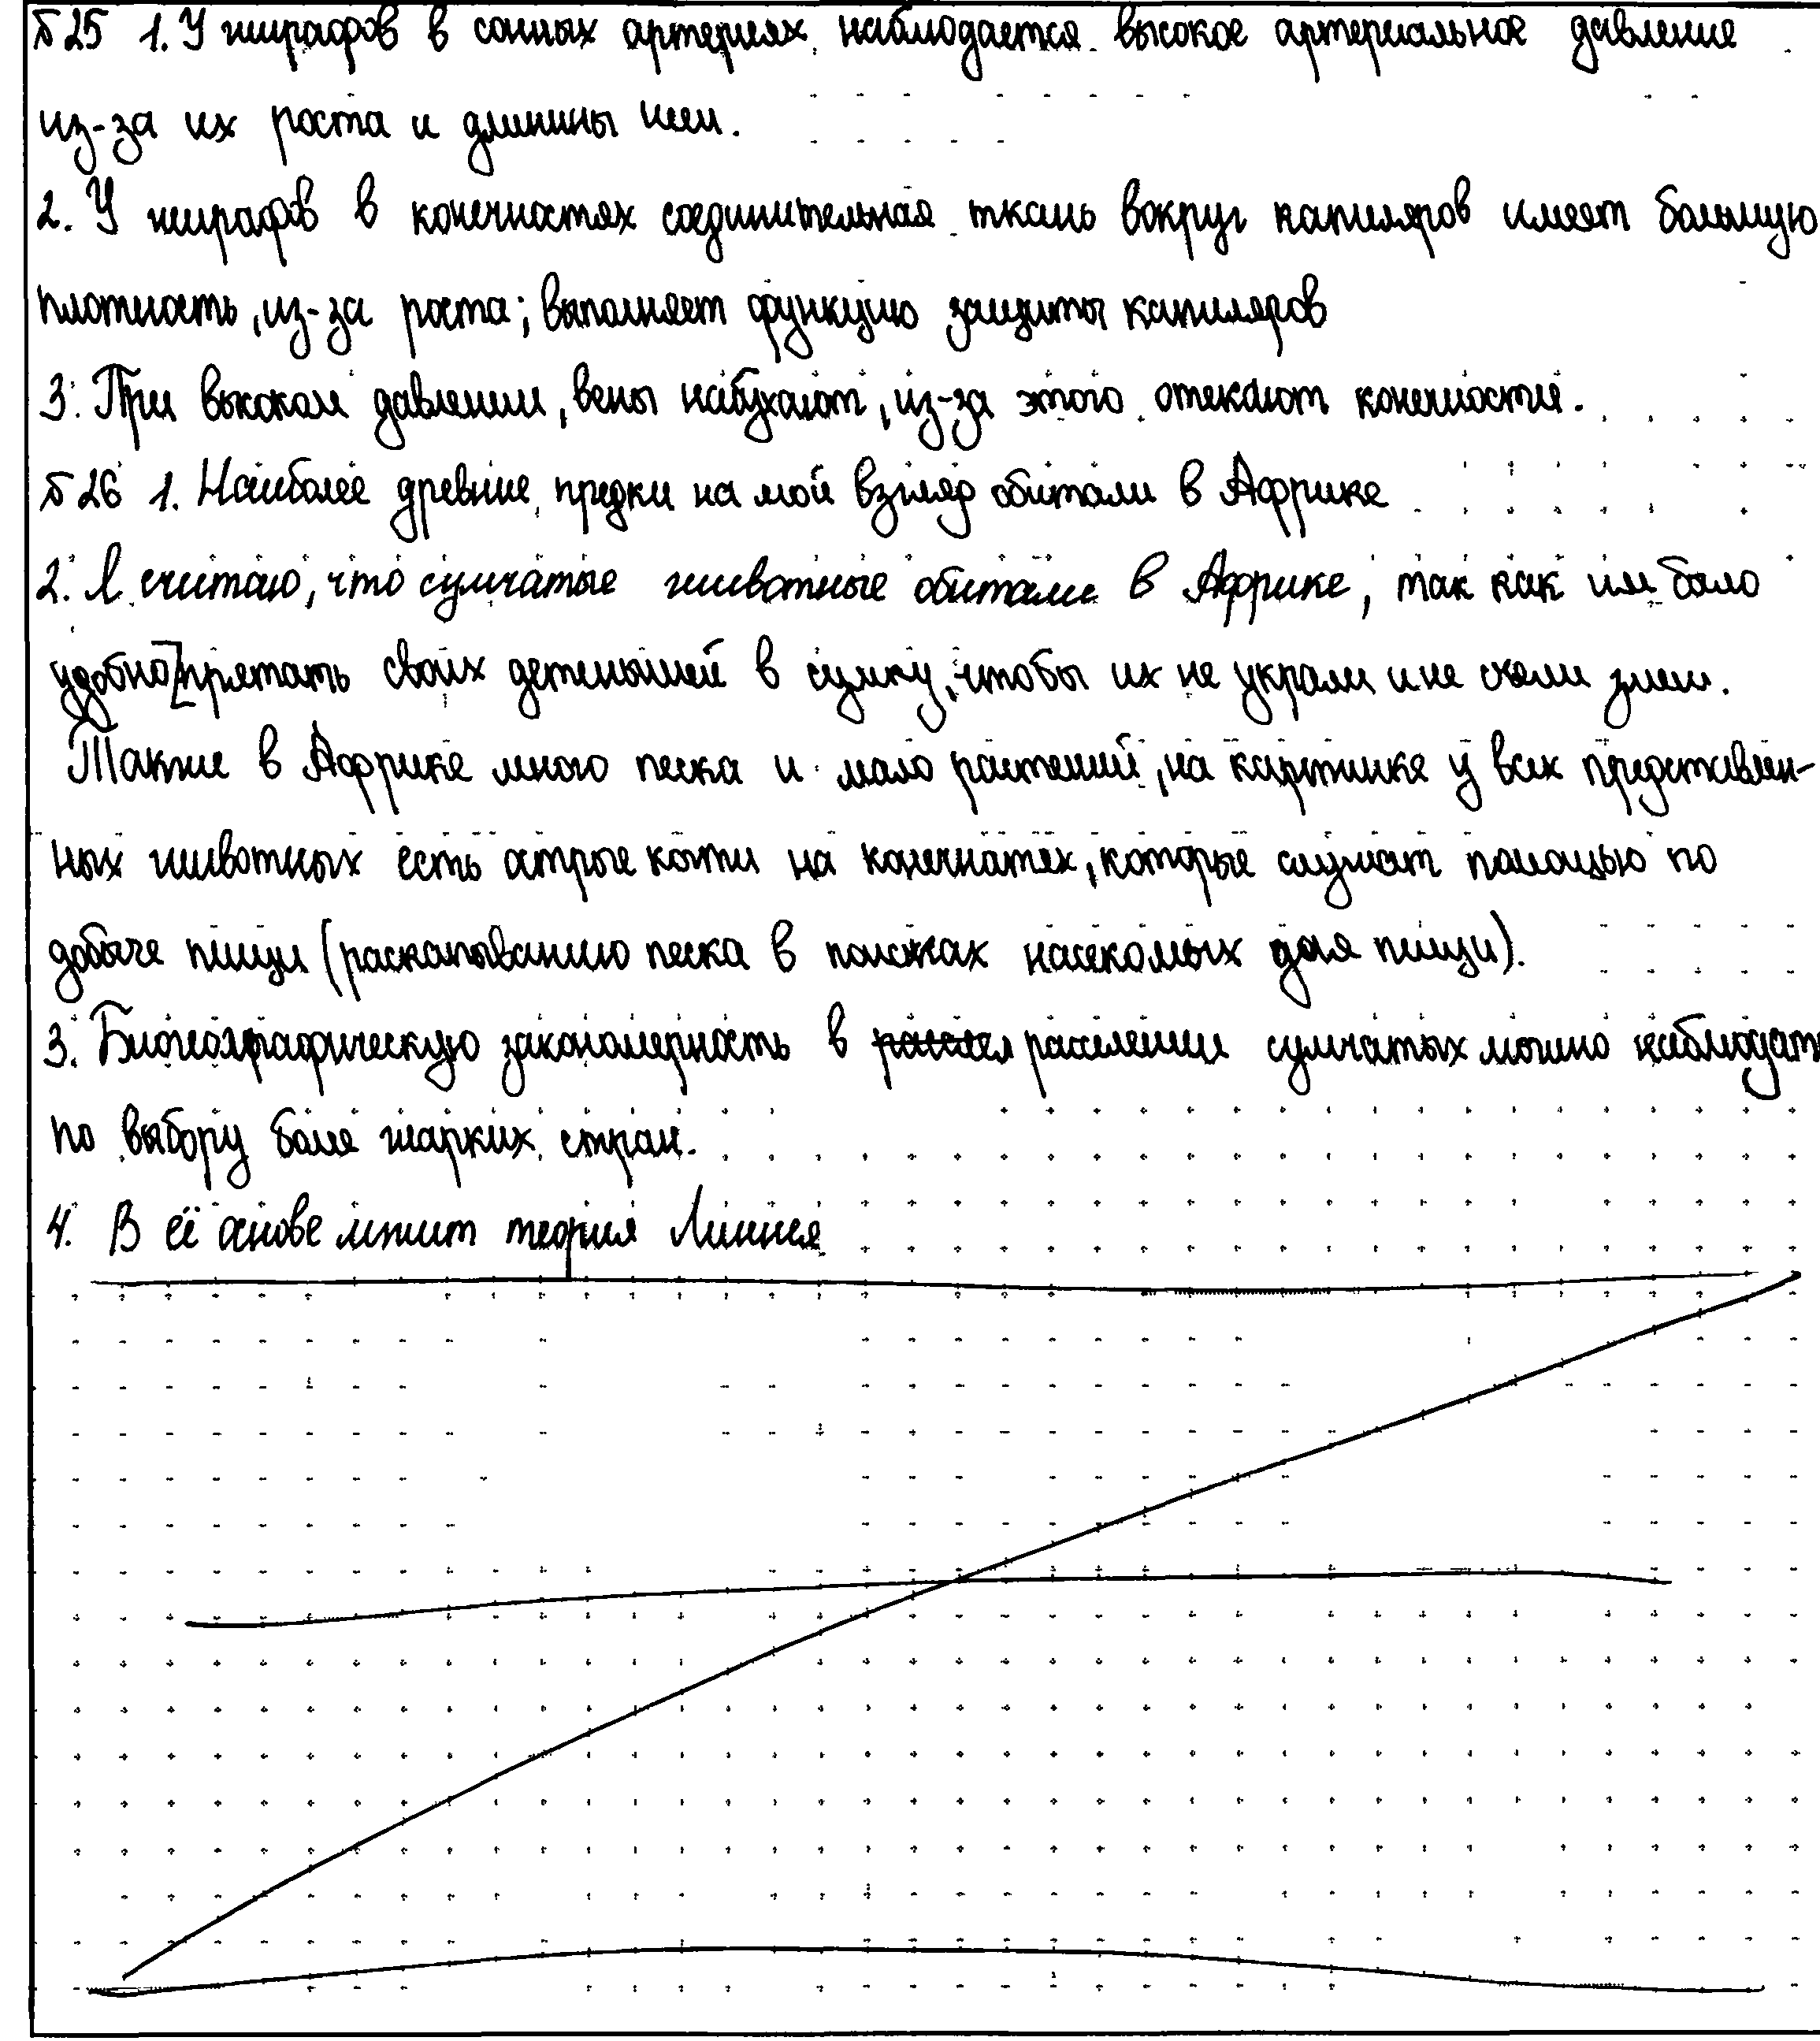 №25 1. У жирафов в сонных артериях наблюдается высокое артериальное давление
из-за их роста и длинны шеи.
2. У жирафов в конечностях соединительная ткань вокруг капиляров имеет большую
плотность, из-за роста; выполняет функцию защиты капиляров
3. При высоком давлении, вены набухают, из-за этого отекают конечности.
№26 1. Наиболее древние предки на мой взгляд обитали в Африке
2. Я считаю, что сумчатые животные обитали в Африке, так как им было
удобно прятать своих детенышей в сумку, чтобы их не украли и не съели змеи.
Также в Африке много песка и мало растений, на картинке у всех представлен-
ных животных есть острые когти на конечнотях, которые служат помощью по
добыче пищи (раскапыванию песка в поисках насекомых для пищи).
3. Биогеографическую закономерность в расселении сумчатых можно наблюдать
по выбору боле жарких стран.
4. В её основе лежит теория Линнея